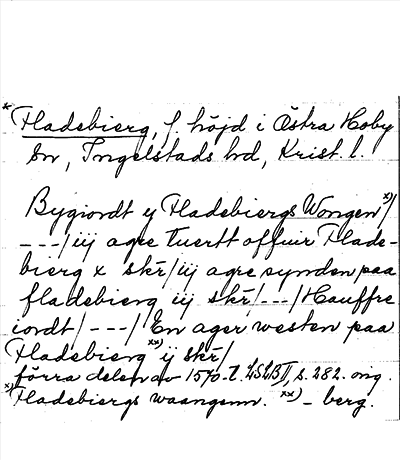 * Fladebierg, f. höjd i Östra Hoby
sn, Ingelstads hd, Krist. l.
Bygiordt y Fladebiergs Wongen x)/
---/iij agre tuertt offuir Flade-
bierg x skr/iij agre synden paa
fladebierg iij skr/---/Hauffre
iordt/---/En ager westen paa
Fladebierg xx) ij skr/
förra delen av 1570-t. LSLB II, s. 282. orig.
x) Fladebiergs waangenn. xx) -berg.